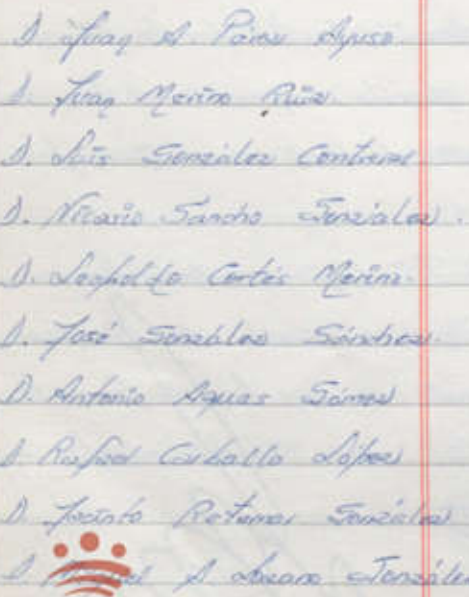 D. Juan A. Pérez Ayuso.
D. Juan Merino Ruiz.
D. Luis González Contreras
D. Nicasio Sancho González.
D. Leopoldo Cortés Merino.
D. José González Sánchez.
D. Antonio Aguas Gómez
D. Rafael Carballo López
D. Jacinto Retamar González
D. Miguel A Lozano González